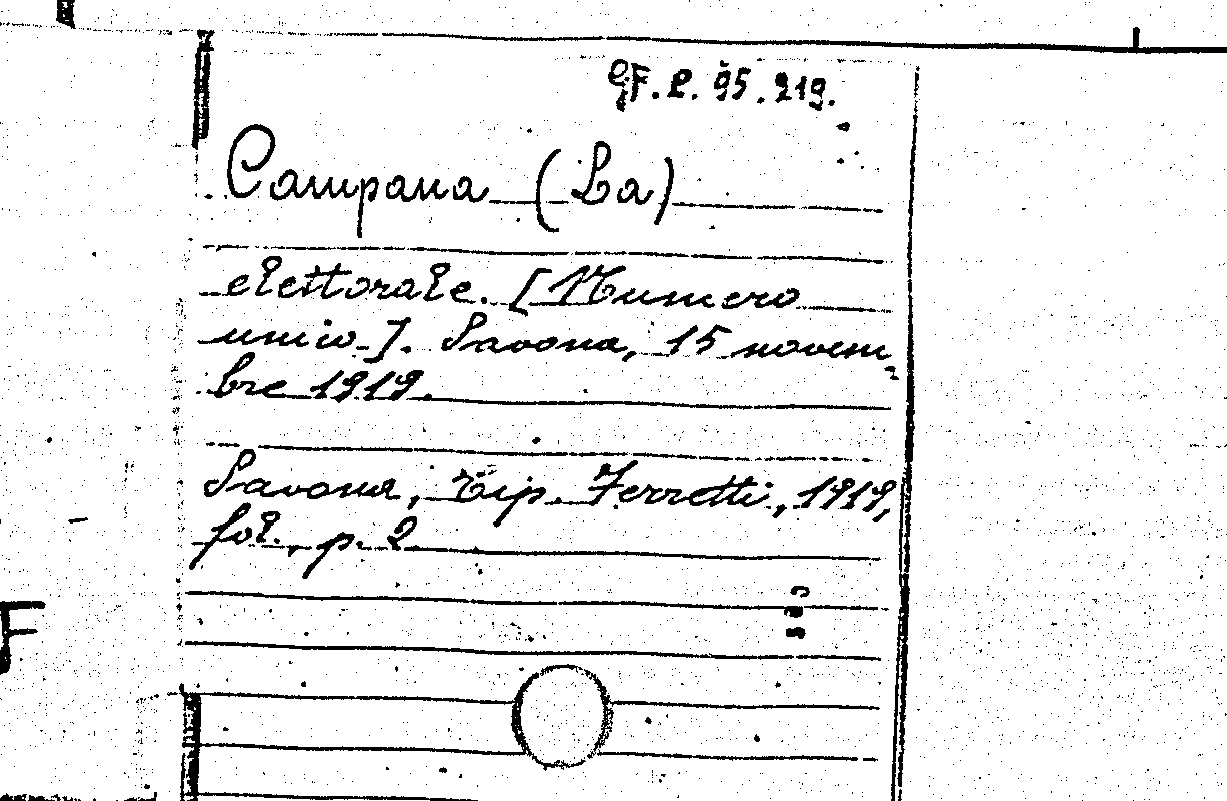 GF. P. 95. 219.
Campana (La)
elettorale. [Numero
unico]. Savona, 15 novem-
bre 1919.
Savona, Tip. Ferretti, 1919,
fol., p. 2
F